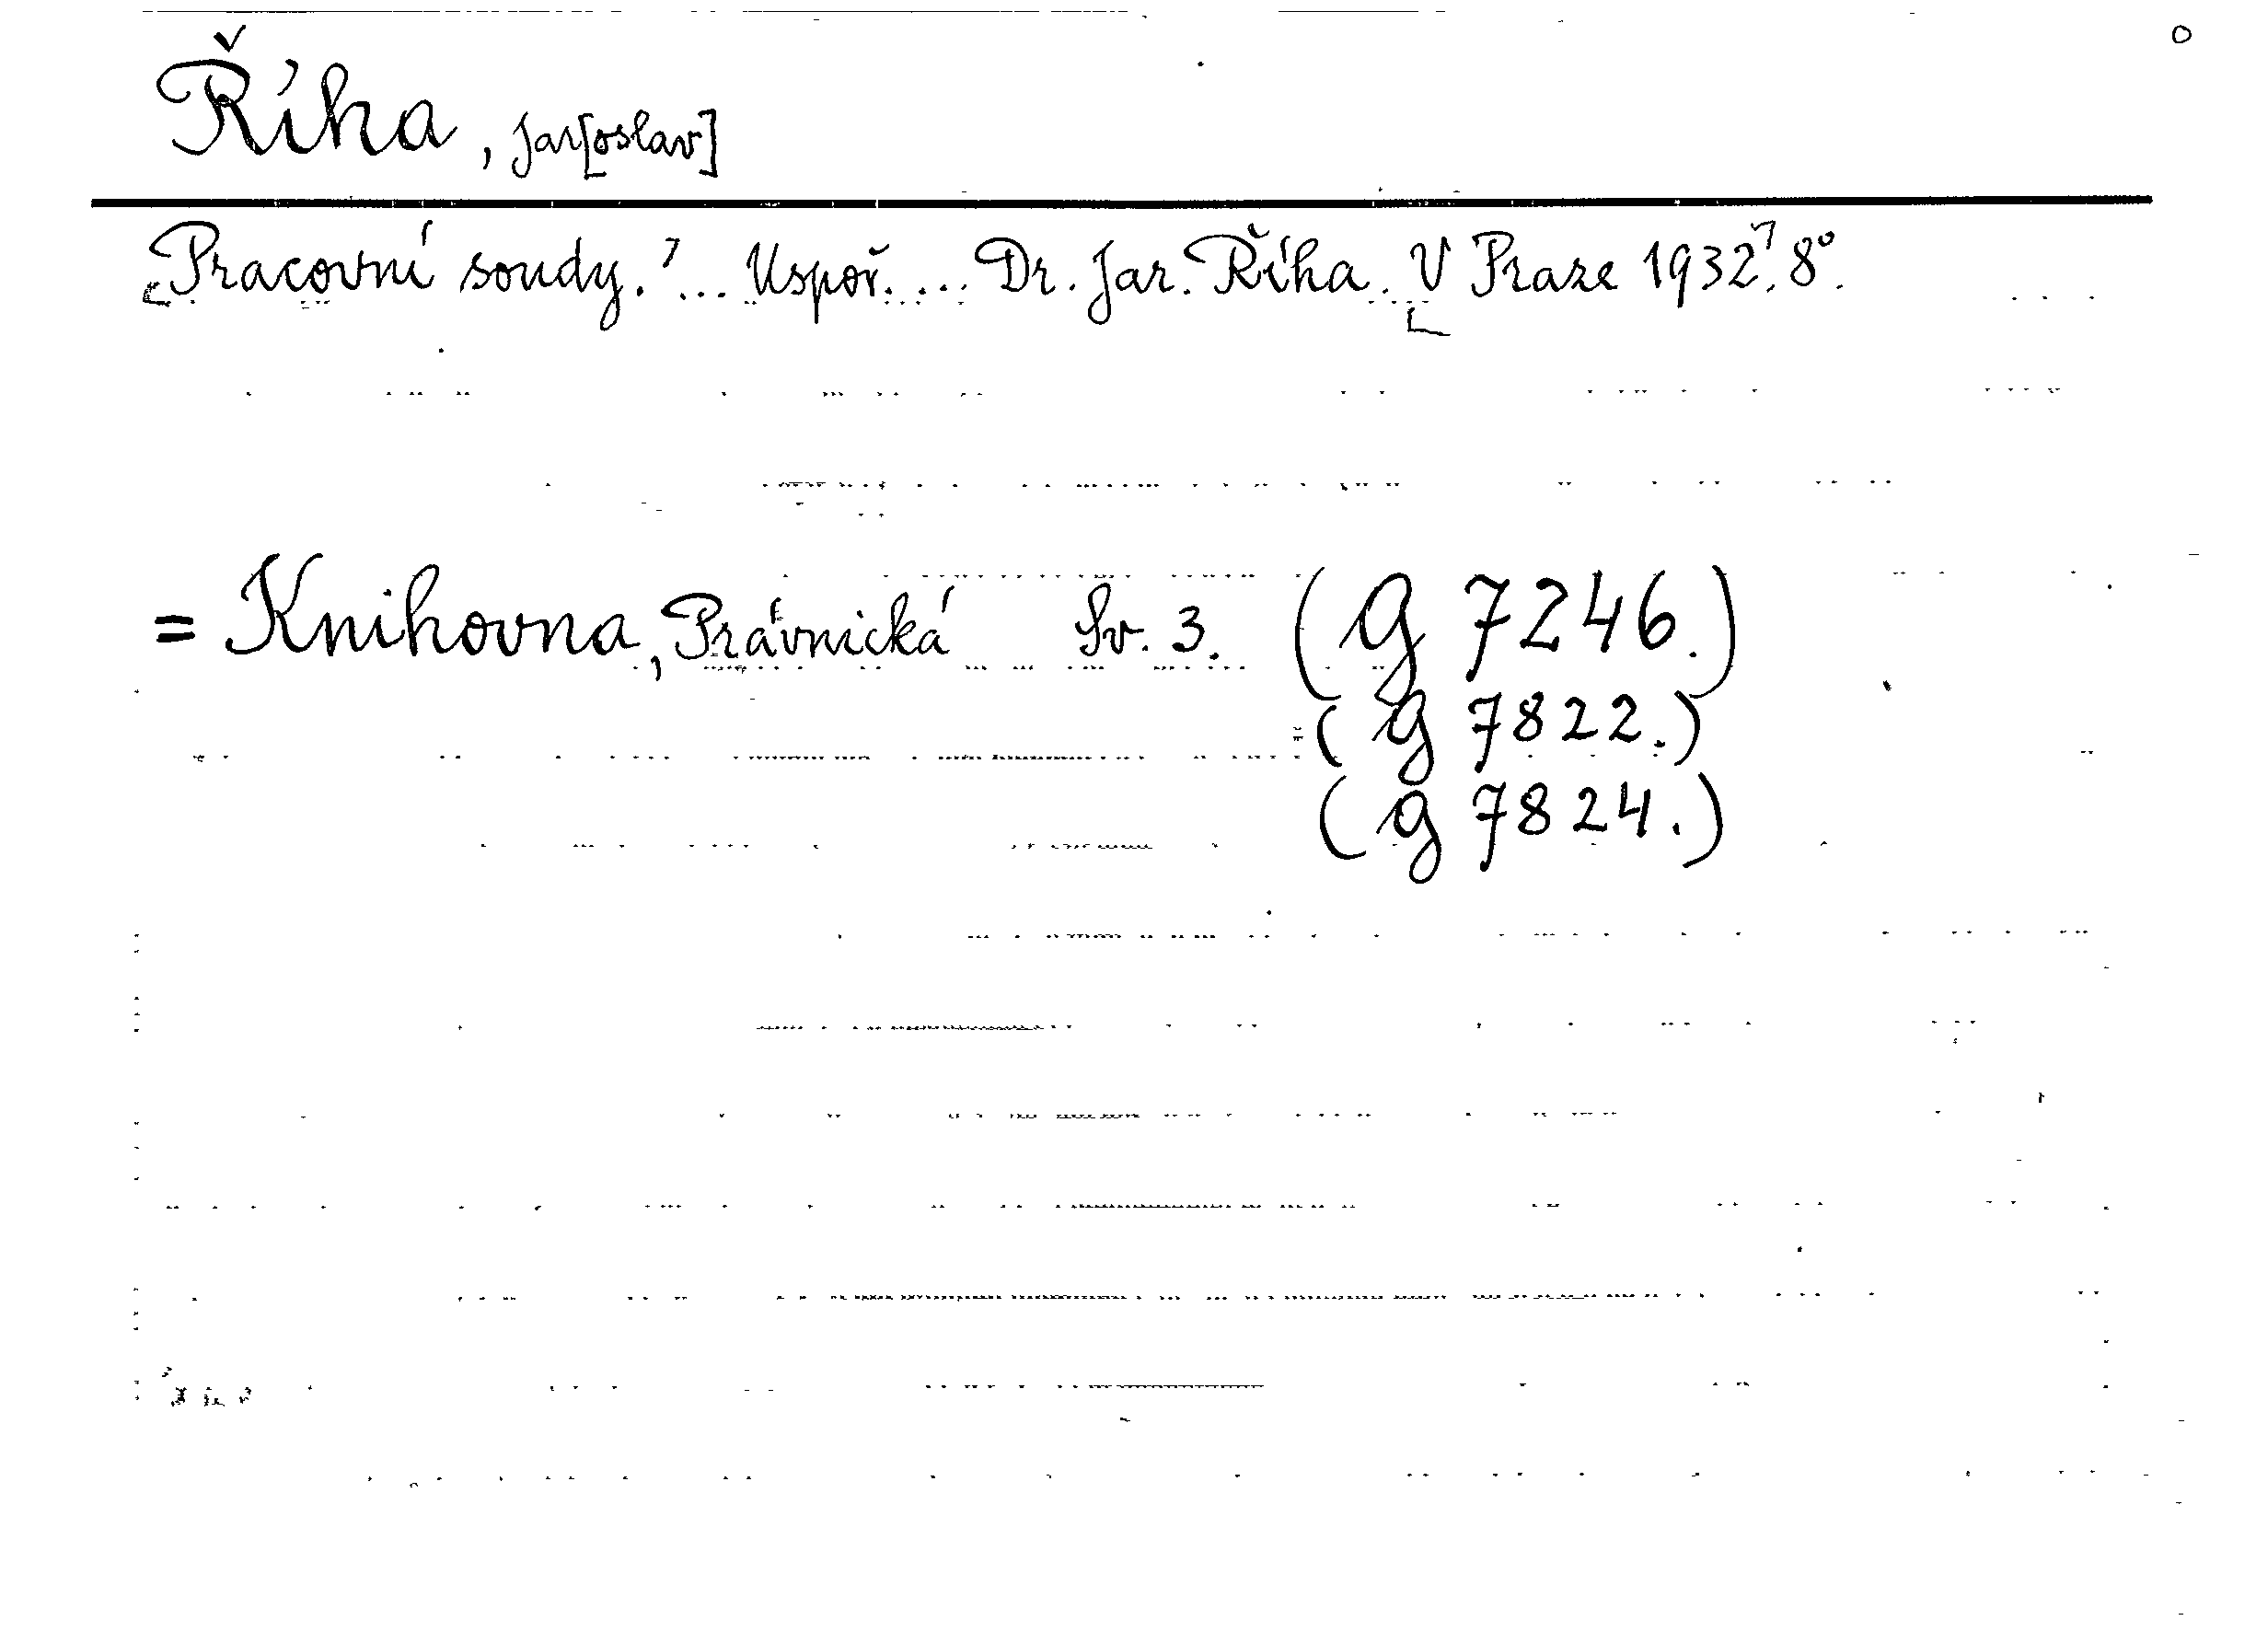 Říha, Jar[oslav]
Pracovní soudy. ... Uspoř. ... Dr. Jar. Říha. V Praze 1932. 8°.
= Knihovna, Právnická Sv. 3. (g 7246.)
(g 7822.)
(g 7824.)